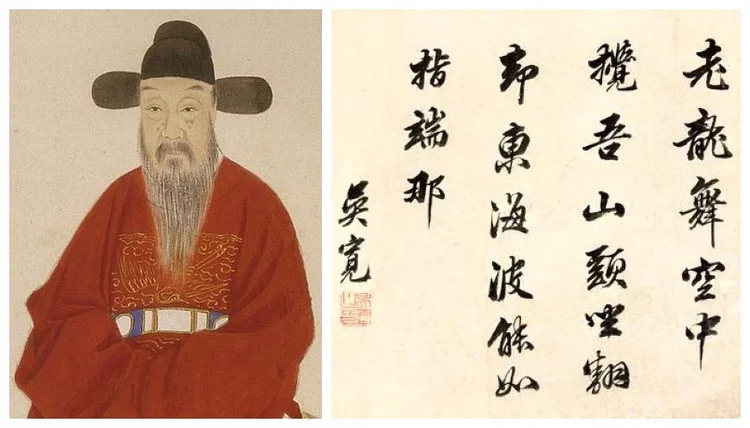 老龍舞空中
攬吾山頭坐翻
却東海波能如
指端那
吳寬